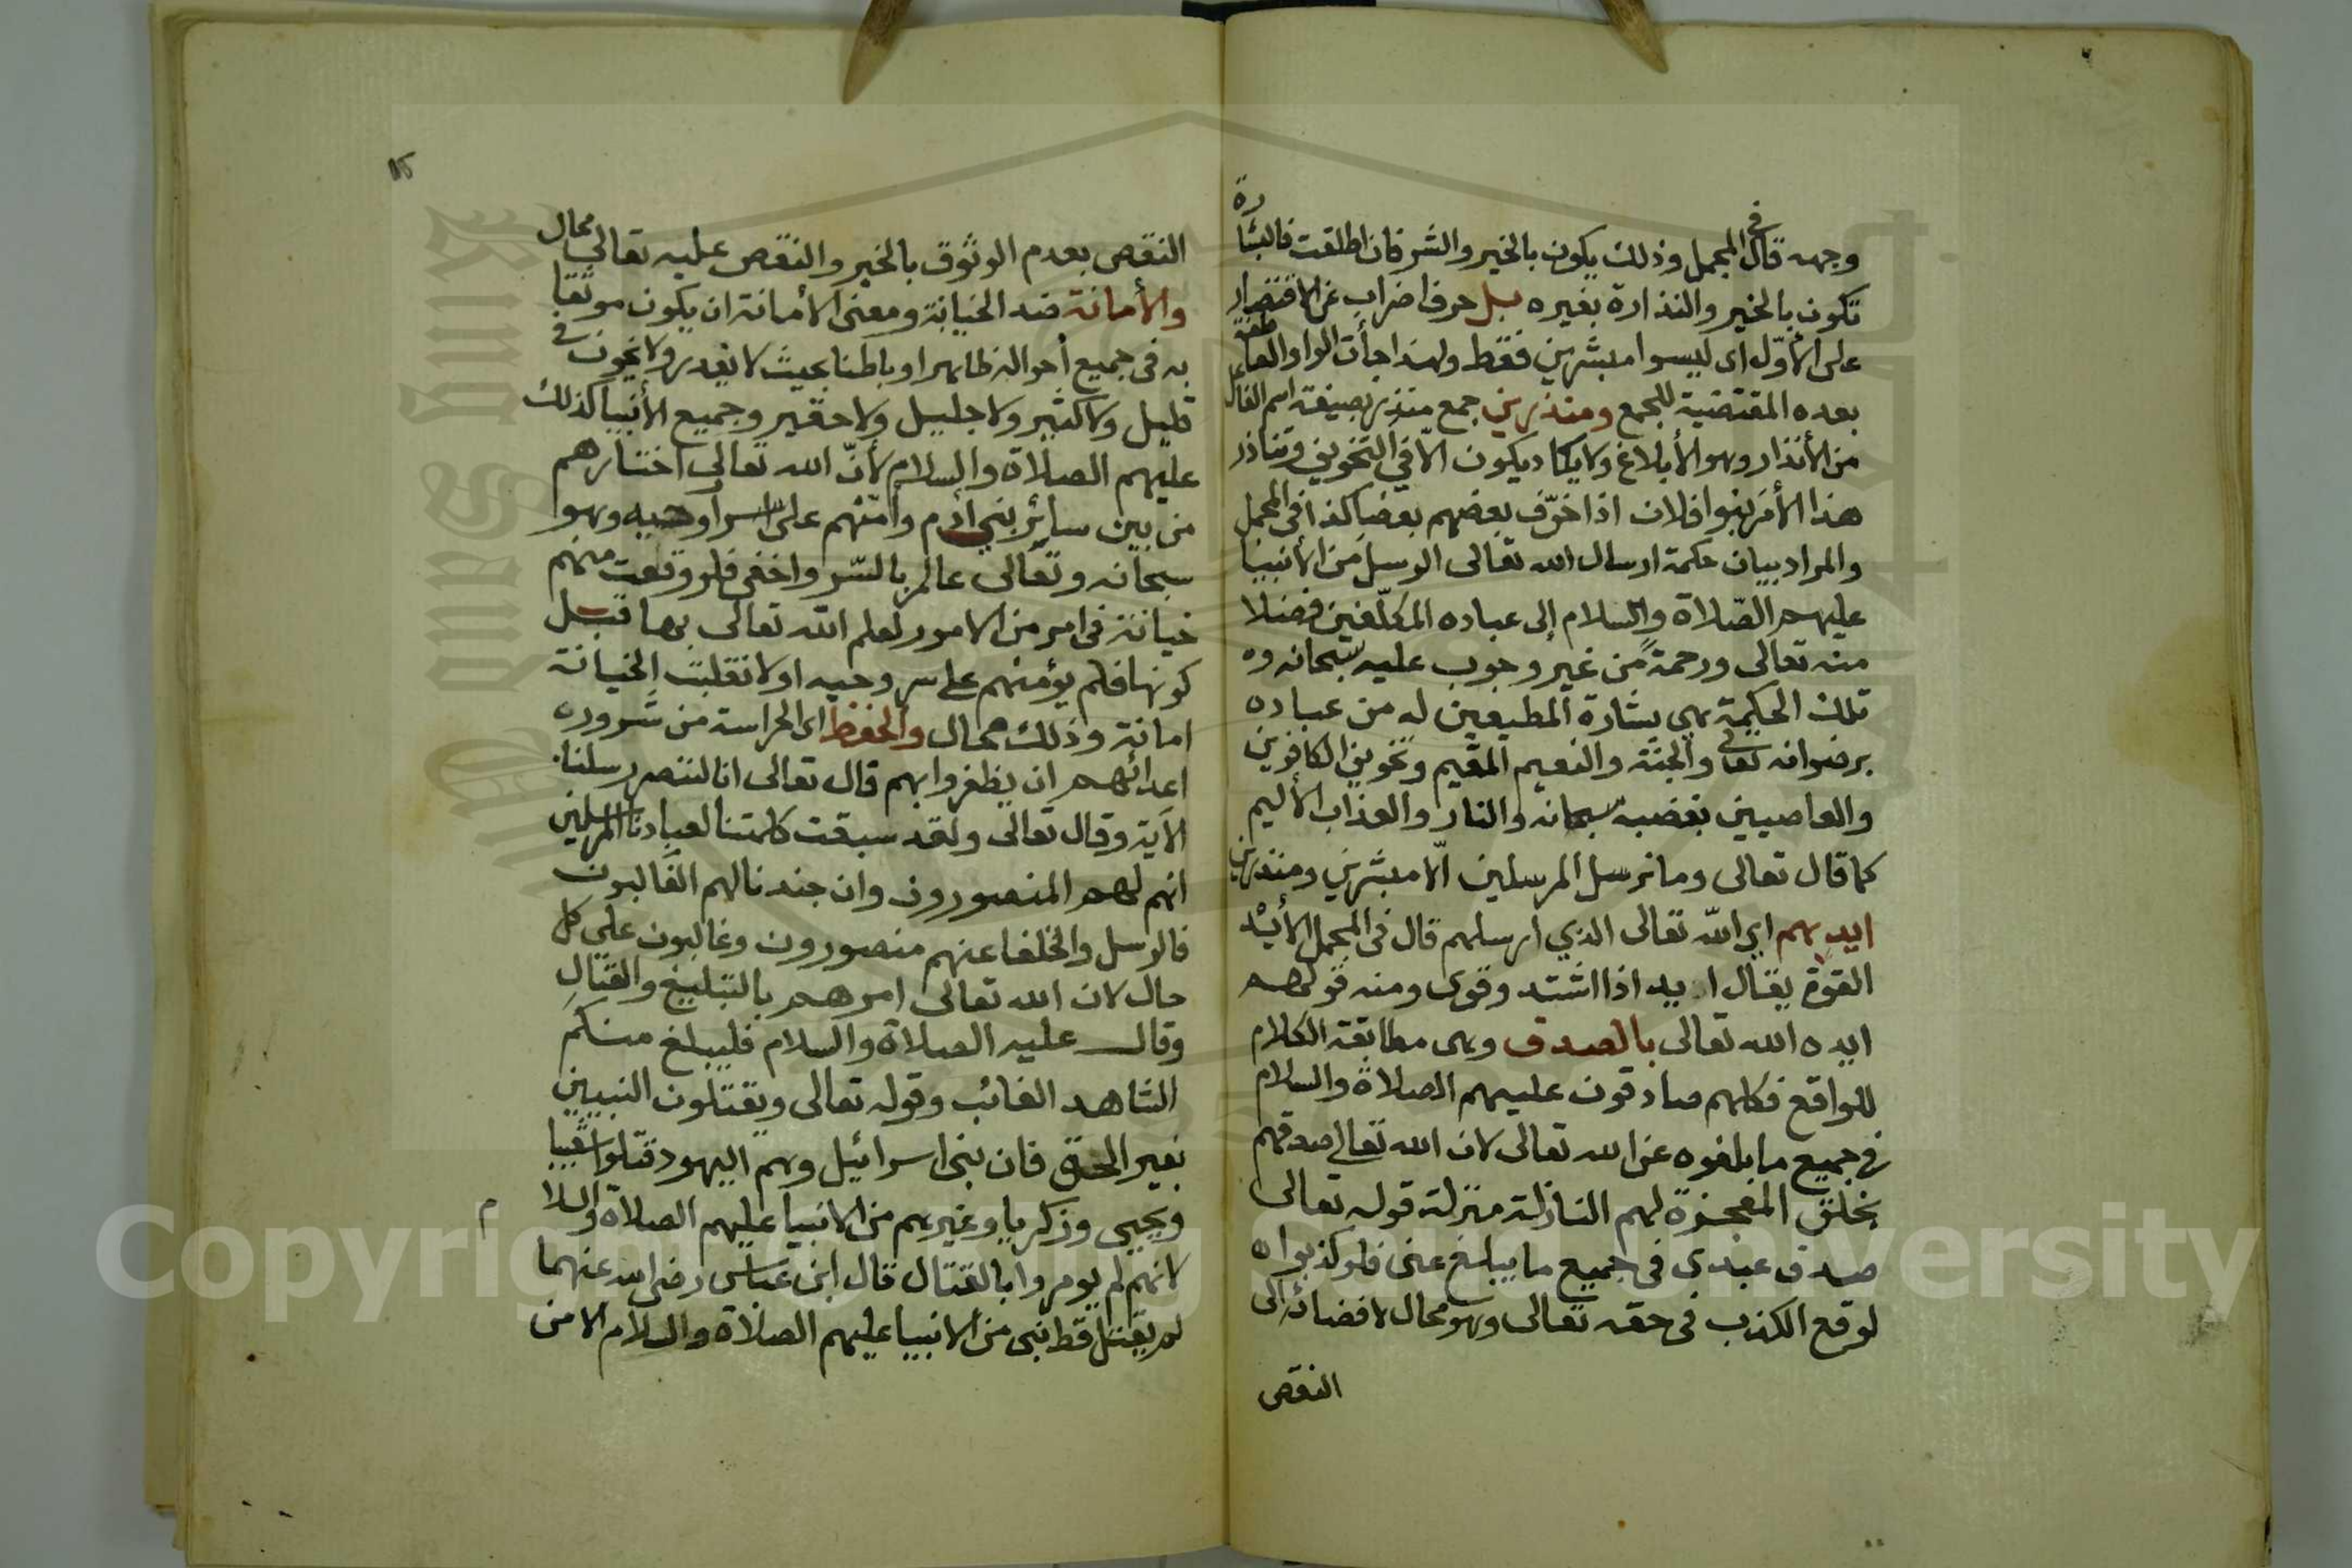 وجهه قال في المجمل وذلك يكون بالخير والشر فان اطلقت فالبشارة
تكون بالخير والنذارة بغيره بل حرف اضراب عن الاقتصار
على الأول اى ليسوا مبشرين فقط ولهذا جأت الواو العاطفة
بعده المقتضية للجمع ومنذرين جمع منذر بصيغة اسم الفاعل
من الأنذار وهو الأبلاغ ولا يكاد يكون الا في التخويف وتناذر
هذا الأمر بنوا فلان اذا خوّف بعضهم بعضا كذا في المجمل
والمراد بيان حكمة ارسال الله تعالى الرسل من الأنبيا
عليهم الصّلاة والسلام إلى عباده المكلّفين فضلا
منه تعالى ورحمةً من غير وجوب عليه سبحانه وه
تلك الحكمة هي بشارة المطيعين له من عباده
برضوانه تعالى والجنة والنعيم المقيم وتخويف الكافرين
والعاصيين بغضبه سبحانه والنار والعذاب الأليم
كما قال تعالى وما نرسل المرسلين الّا مبشرين ومنذرين
ايدهم اي الله تعالى الذي ارسلهم قال في المجمل الأيْد
القوة يقال ايد اذا اشتد وقوى ومنه قولهم
ايده الله تعالى بالصدق وهي مطابقة الكلام
للواقع فكلهم صادقون عليهم الصلاة والسلام
في جميع ما بلغوه عن الله تعالى لان الله تعالى صدقهم
بخلق المعجزة لهم النازلة منزلة قوله تعالى
صدق عبدى في جميع ما يبلغ عنى فلو كذبوا ه
لوقع الكذب في حقه تعالى وهو محال لافضائه الى
النقص
النقص بعدم الوثوق بالخبر والنقص عليه تعالى محال
والأمانة ضد الخيانة ومعنى الأمانة ان يكون موثقا
به في جميع أحواله ظاهرا وباطنا بحيث لا يغدر ولا يخون في
قليل ولا كثير ولا جليل ولا حقير وجميع الأنبيا كذلك
عليهم الصلاة والسلام لأنّ الله تعالى اختارهم
من بين سائر بني أدم وأمنهم على اسرار وحيه وهو
سبحانه وتعالى عالم بالسّر واخفى فلو وقعت منهم
خيانة في امر من الامور لعلم الله تعالى بها قبل
كونها فلم يؤمنهم على سر وحيه او لانقلبت الخيانة
امانة وذلك محال والحفظ اى الحراسة من شرور ه
اعدائهم ان يظفروا بهم قال تعالى انا لننصر رسلنا
الآية وقال تعالى ولقد سبقت كلمتنا لعبادنا المرسلين
انهم لهم المنصورون وان جندنا لهم الغالبون
فالرسل والخلفا عنهم منصورون وغالبون على كل
حال لان الله تعالى امرهم بالتبليغ والقتال
وقال عليه الصلاة والسلام فليبلغ منكم
الشاهد الغائب وقوله تعالى ويقتلون النبيين
بغير الحق فان بنى اسرائيل وهم اليهود قتلوا شعيبا
ويحيى وزكريا وغيرهم من الانبيا عليهم الصلاة والسلام
لانهم لم يومروا بالقتال قال ابن عباس رضى الله عنهما
لم يقتل قط نبى من الانبيا عليهم الصلاة والسلام الا من
Copyright © King Saud University